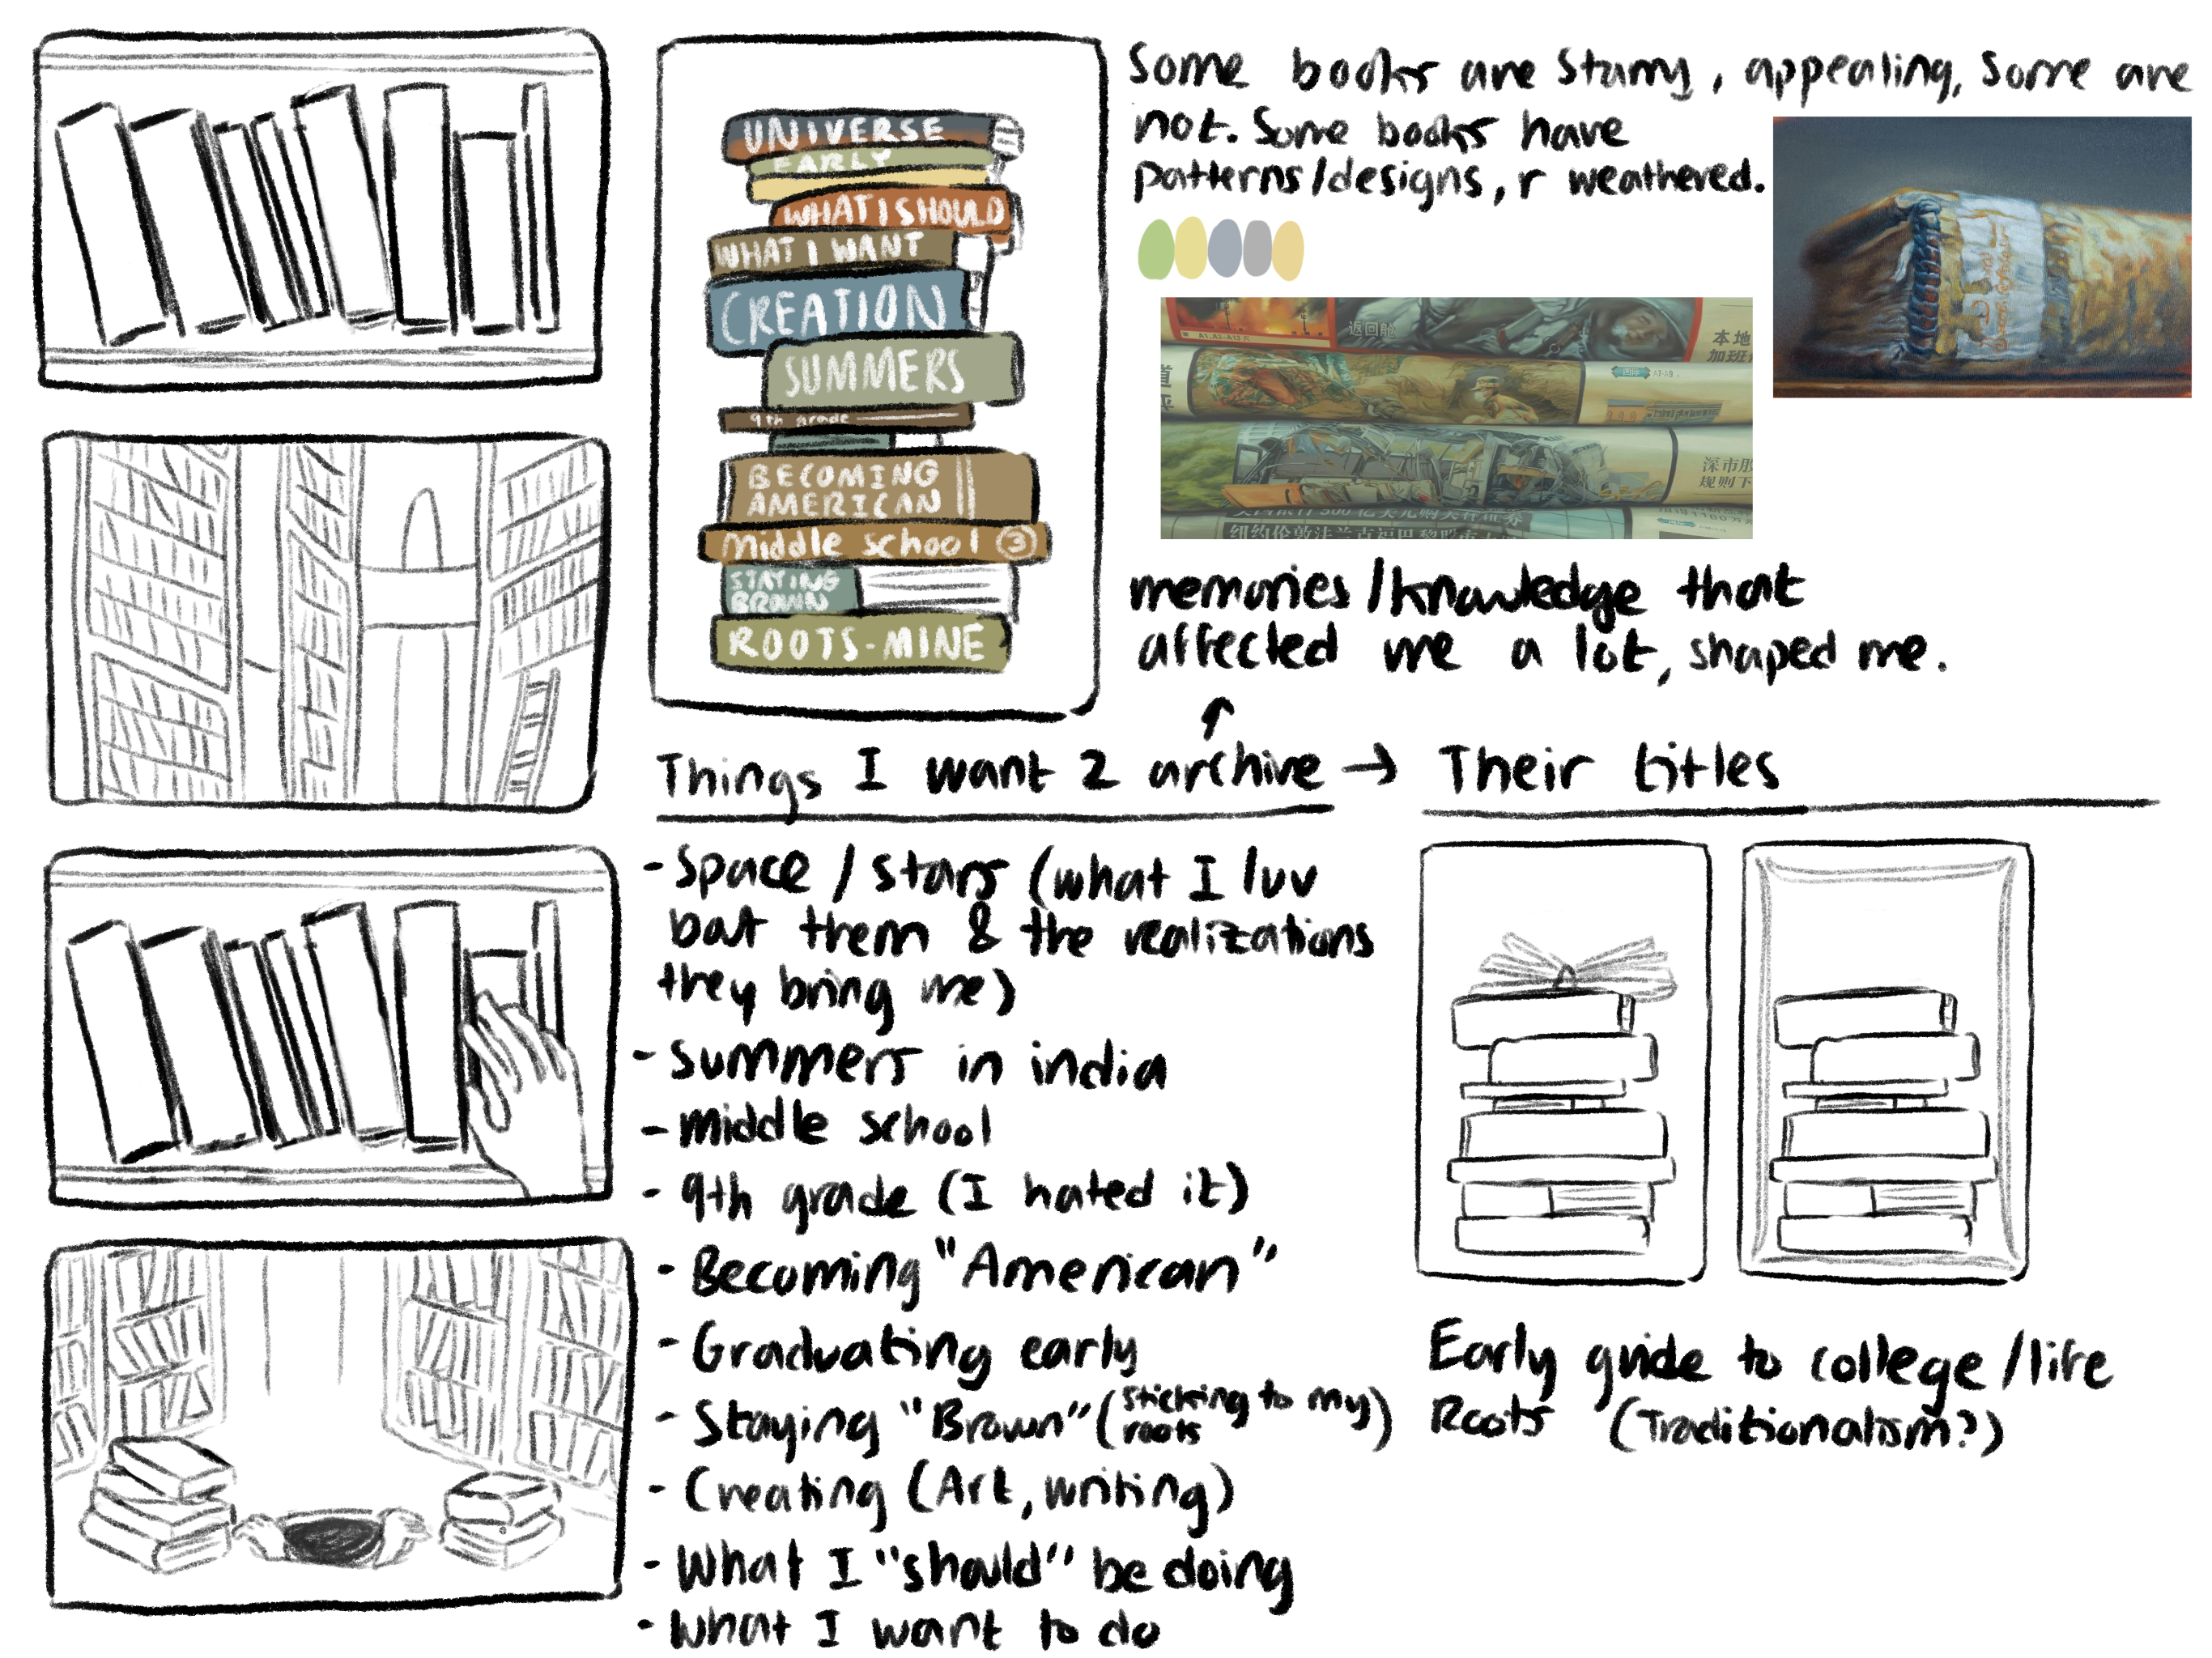 UNIVERSE
EARLY
WHAT I SHOULD
WHAT I WANT
CREATION
SUMMERS
9th grade
BECOMING
AMERICAN
middle school ③
STAYING
BROWN
ROOTS-MINE
Some books are Starry, appealing, Some are
not. Some books have
patterns/designs, r weathered.
返回舱
本地
加班
道
平
深市股
规则下
纽约伦敦法兰克福巴黎股市
memories/knowledge that
affected me a lot, shaped me.
Things I want 2 archive → Their titles
- Space / stars (what I luv
bout them & the realizations
they bring me)
- Summers in india
- middle school
- 9th grade (I hated it)
- Becoming "American"
- Graduating early
- Staying "Brown" (sticking to my roots)
- Creating (Art, writing)
- What I "should" be doing
- What I want to do
Early guide to college/life
Roots (Traditionalism?)